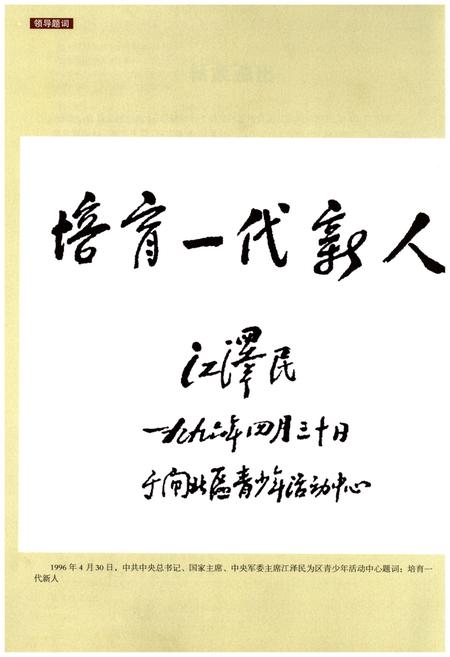 领导题词
培育一代新人
江泽民
一九九六年四月三十日
于闸北區青少年活动中心
1996 年 4 月 30 日，中共中央总书记、国家主席、中央军委主席江泽民为区青少年活动中心题词：培育一
代新人